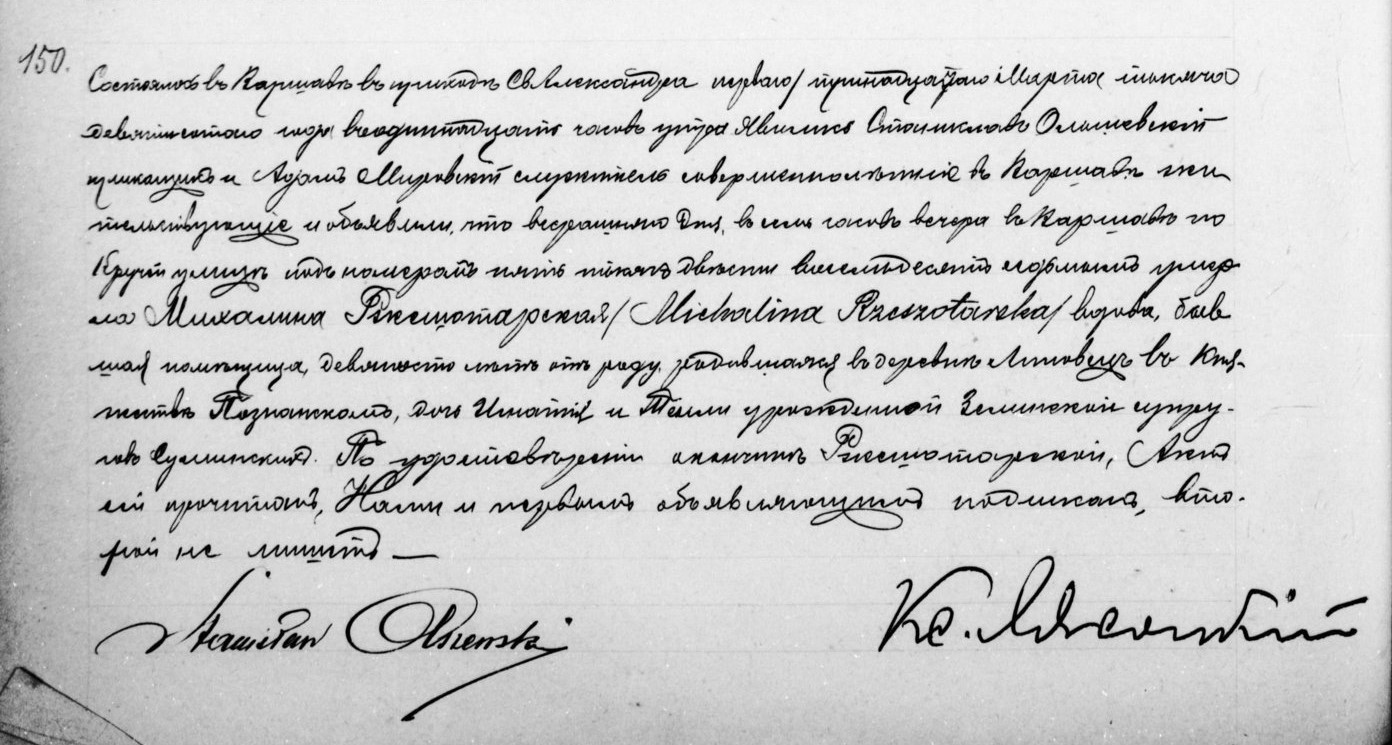 150.
Состоялось въ Варшавѣ въ приходѣ Св Александра перваго/тринадцатаго Марта тысяча
девятисотаго года въ одиннадцать часовъ утра Явились Станиславъ Ольшевскій
приказчикъ и Адамъ Мировскій служитель совершеннолѣтніе въ Варшавѣ жи
тельствующіе и объявили, что вчерашняго дня, въ семь часовъ вечера въ Варшавѣ по
Кручей улицѣ подъ номеромъ пять тысячъ двѣсти восемьдесятъ седьмымъ умер
ла Михалина Ржешотарская /Michalina Rzeszotarska/ вдова, быв
шая помѣщица, девяносто лѣтъ отъ роду, родившаяся въ деревнѣ въ Кня-
жествѣ Познанскомъ, дочь Игнатія и Теклы урожденной Зелинской супру-
говъ Сулинскихъ. По удостовѣреніи о кончинѣ Ржешотарской, Актъ
сей прочитанъ, Нами и первымъ объявляющимъ подписанъ, вто-
рой не пишетъ —
Stanisław Olszewski
Кс.